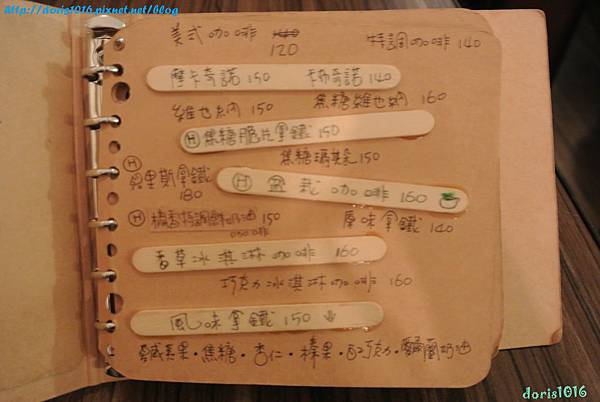 Http://doris1016.pixnet.net/blog
美式咖啡 140 120
特調咖啡 140
摩卡奇諾 150
卡布奇諾 140
維也納 150
焦糖維也納 160
H 焦糖脆片拿鐵 150
焦糖瑪其朵 150
H 貝里斯拿鐵 180
H 盆栽咖啡 160
H 橘香特調鮮奶油 150
原味拿鐵 140
香草冰淇淋咖啡 160
巧克力冰淇淋咖啡 160
風味拿鐵 150 ↓
夏威夷果・焦糖・杏仁・榛果・巧克力・愛爾蘭奶油
doris1016